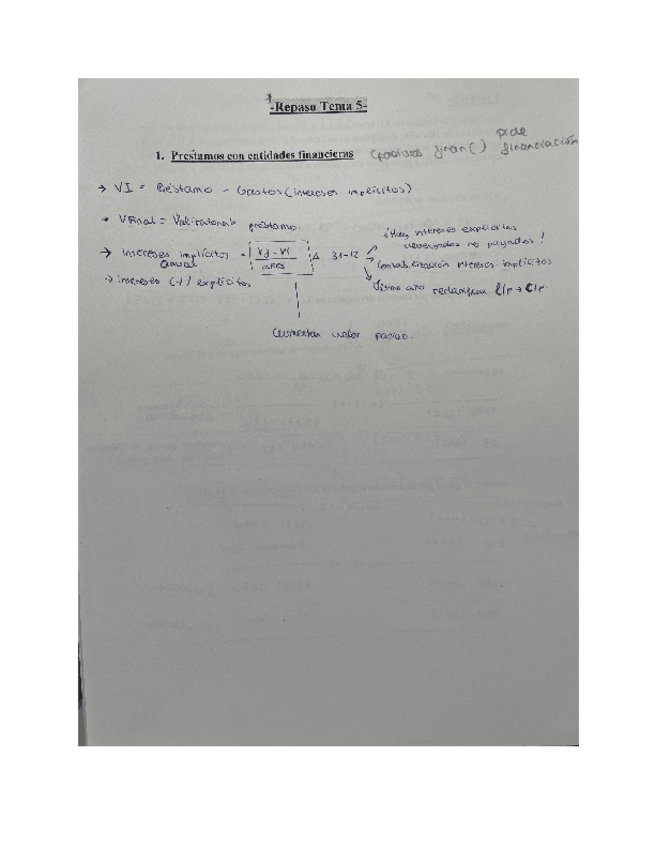 -Repaso Tema 5-
pide
1. Prestamos con entidades financieras (pasivos finan() financiación
→ VI = Préstamo - Gastos (intereses implícitos)
→ VFinal = préstamo
→ Intereses implícitos = VF - VI / años 31-12
anual
¿Hay intereses explícitos devengados no pagados?
Contabilización intereses implícitos
Último año reclasificar L/p → C/p
→ intereses (+) explícitos
Aumentan valor pasivo.